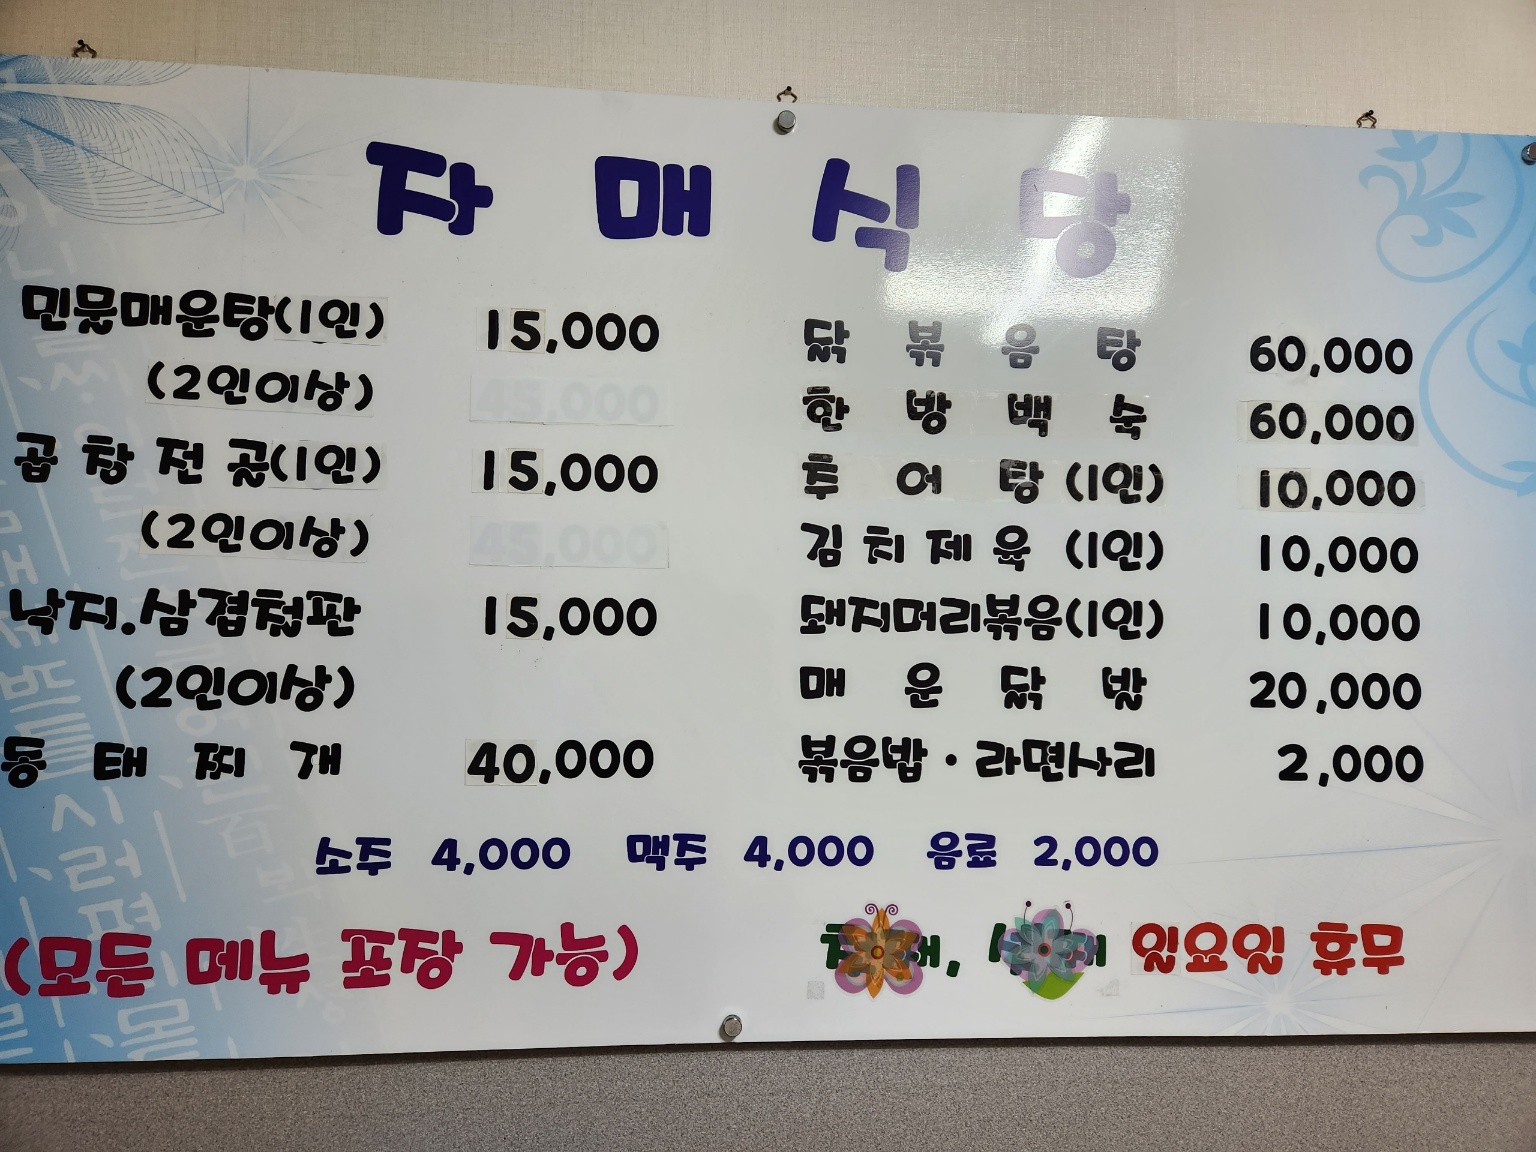 자매식당
민물매운탕(1인) 15,000
(2인이상)
곱창전골(1인) 15,000
(2인이상)
낙지.삼겹철판 15,000
(2인이상)
동태찌개 40,000
닭볶음탕 60,000
한방백숙 60,000
추어탕(1인) 10,000
김치제육(1인) 10,000
돼지머리볶음(1인) 10,000
매운닭발 20,000
볶음밥·라면사리 2,000
소주 4,000 맥주 4,000 음료 2,000
(모든 메뉴 포장 가능)
일요일 휴무